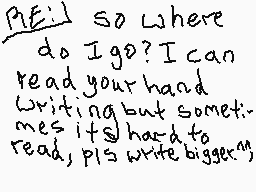 RE:] so where
do I go? I can
read your hand
writing but someti-
mes its hard to
read, pls write bigger^^,